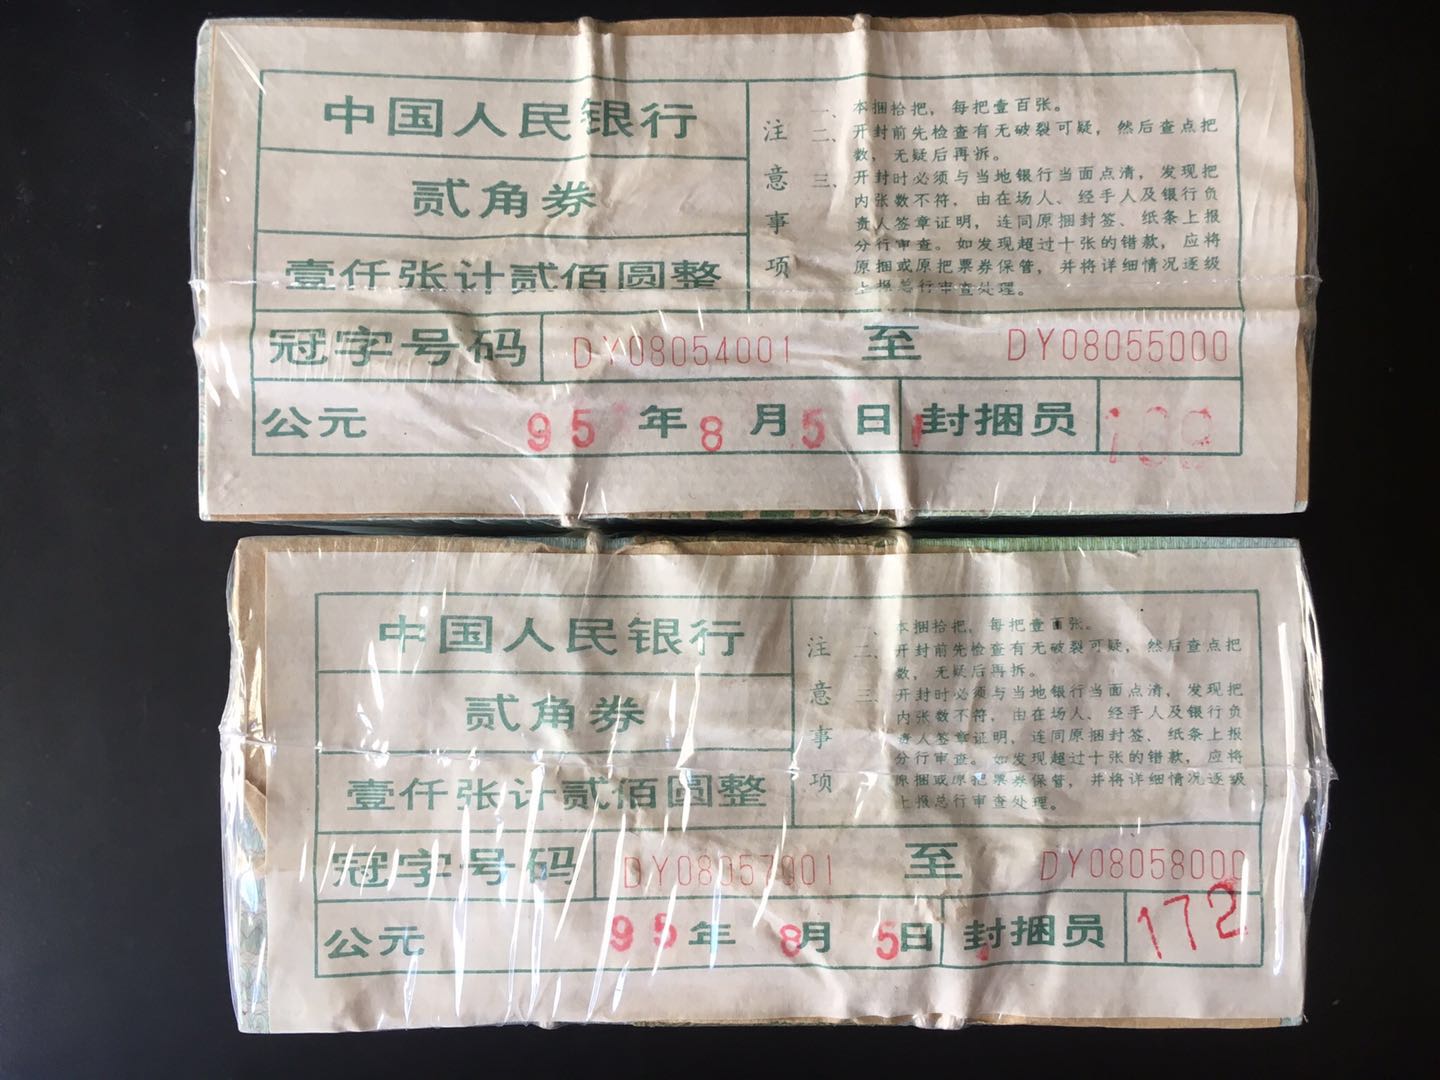 中国人民银行
贰角券
壹仟张计贰佰圆整
注意事项
一、本捆拾把，每把壹百张。
二、开封前先检查有无破裂可疑，然后查点把
数，无疑后再拆。
三、开封时必须与当地银行当面点清，发现把
内张数不符，由在场人、经手人及银行负
责人签章证明，连同原捆封签、纸条上报
分行审查。如发现超过十张的错款，应将
原捆或原把票券保管，并将详细情况逐级
上报总行审查处理。
冠字号码 DY08054001 至 DY08055000
公元 95年8月5日 封捆员
中国人民银行
贰角券
壹仟张计贰佰圆整
注意事项
一、本捆拾把，每把壹百张。
二、开封前先检查有无破裂可疑，然后查点把
数，无疑后再拆。
三、开封时必须与当地银行当面点清，发现把
内张数不符，由在场人、经手人及银行负
责人签章证明，连同原捆封签、纸条上报
分行审查。如发现超过十张的错款，应将
原捆或原把票券保管，并将详细情况逐级
上报总行审查处理。
冠字号码 DY08057001 至 DY08058000
公元 95年8月5日 封捆员 172